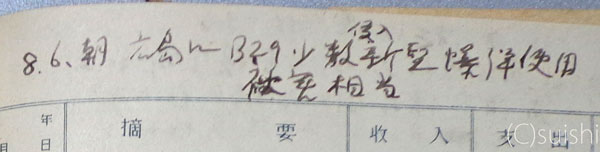 8.6、朝 広島にB29少数侵入新型爆弾使用
被害相当
年
月 日
摘 要
収 入
支 出
(C)suishi